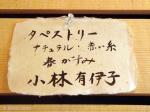 タペストリー
ナチュラル・赤い糸
春がすみ
小林有伊子